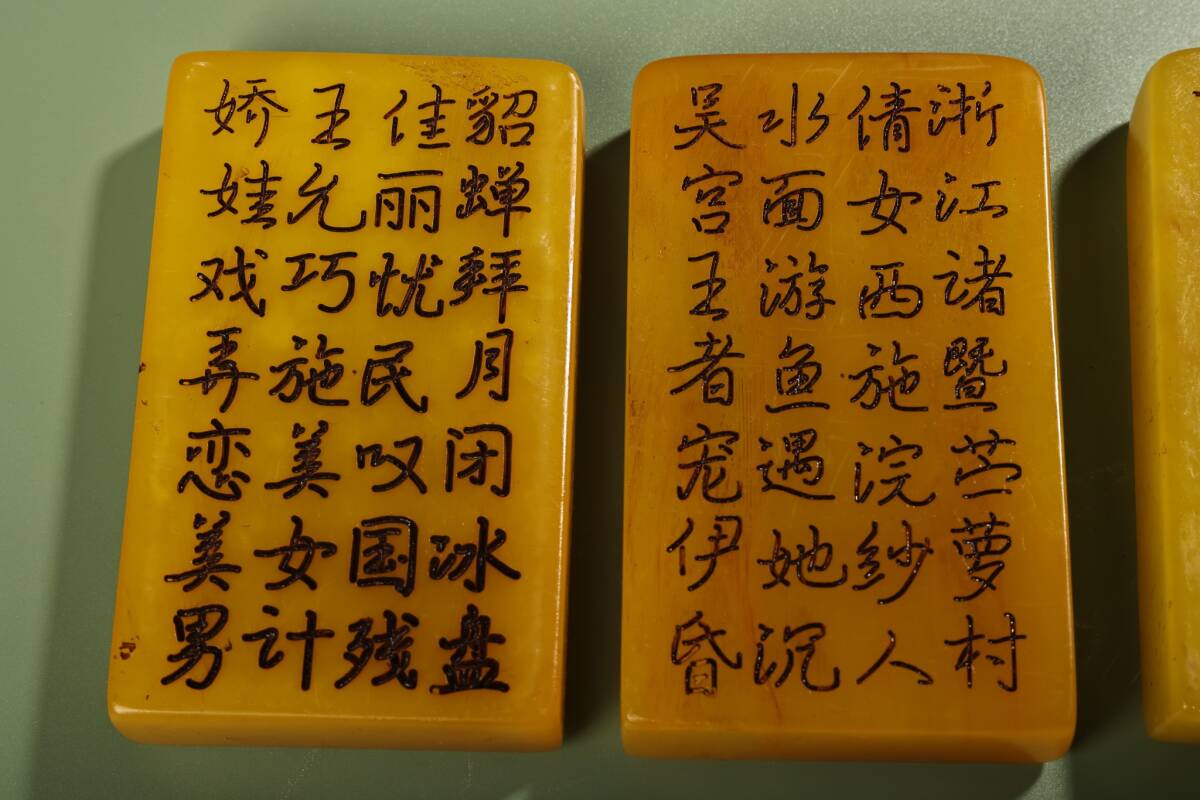 貂蝉拜月闭冰盘
佳丽忧民叹国残
王允巧施美女计
娇娃戏弄恋美男
浙江诸暨苎萝村
倩女西施浣纱人
水面游鱼遇她沉
吴宫王者宠伊昏